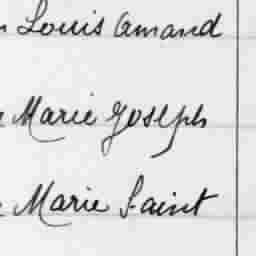 Louis Amand
Marie Joseph
Marie Saint